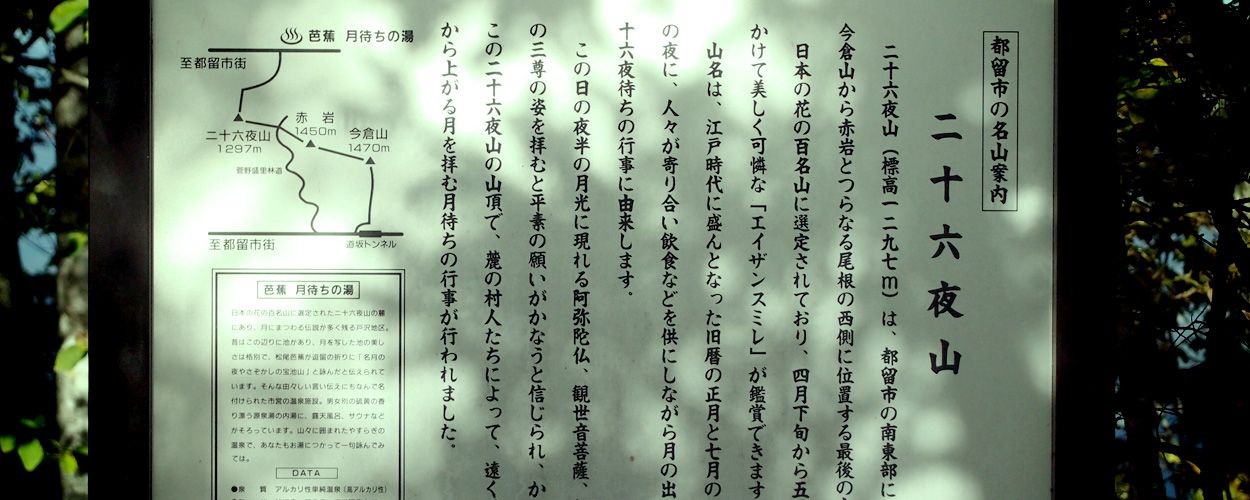 都留市の名山案内
二十六夜山
二十六夜山(標高一二九七m)は、都留市の南東部に
今倉山から赤岩とつらなる尾根の西側に位置する最後の
日本の花の百名山に選定されており、四月下旬から五
かけて美しく可憐な「エイザンスミレ」が鑑賞できます
山名は、江戸時代に盛んとなった旧暦の正月と七月の
の夜に、人々が寄り合い飲食などを供にしながら月の出
十六夜待ちの行事に由来します。
この日の夜半の月光に現れる阿弥陀仏、観世音菩薩、
の三尊の姿を拝むと平素の願いがかなうと信じられ、か
この二十六夜山の山頂で、麓の村人たちによって、遠く
から上がる月を拝む月待ちの行事が行われました。
♨ 芭蕉 月待ちの湯
至都留市街
赤岩
1450m
今倉山
1470m
二十六夜山
1297m
菅野盛里林道
至都留市街
道坂トンネル
芭蕉 月待ちの湯
日本の花の百名山に選定された二十六夜山の麓
にあり、月にまつわる伝説が多く残る戸沢地区。
昔はこの辺りに池があり、月を写した池の美し
さは格別で、松尾芭蕉が逗留の折りに「名月の
夜やさぞかしの宝池山」と詠んだと伝えられて
います。そんな由々しい言い伝えにちなんで名
付けられた市営の温泉施設。男女別の硫黄の香
り漂う源泉湯の内湯に、露天風呂、サウナなど
がそろっています。山々に囲まれたやすらぎの
温泉で、あなたもお湯につかって一句詠んでみ
ては。
DATA
●泉 質 アルカリ性単純温泉(高アルカリ性)